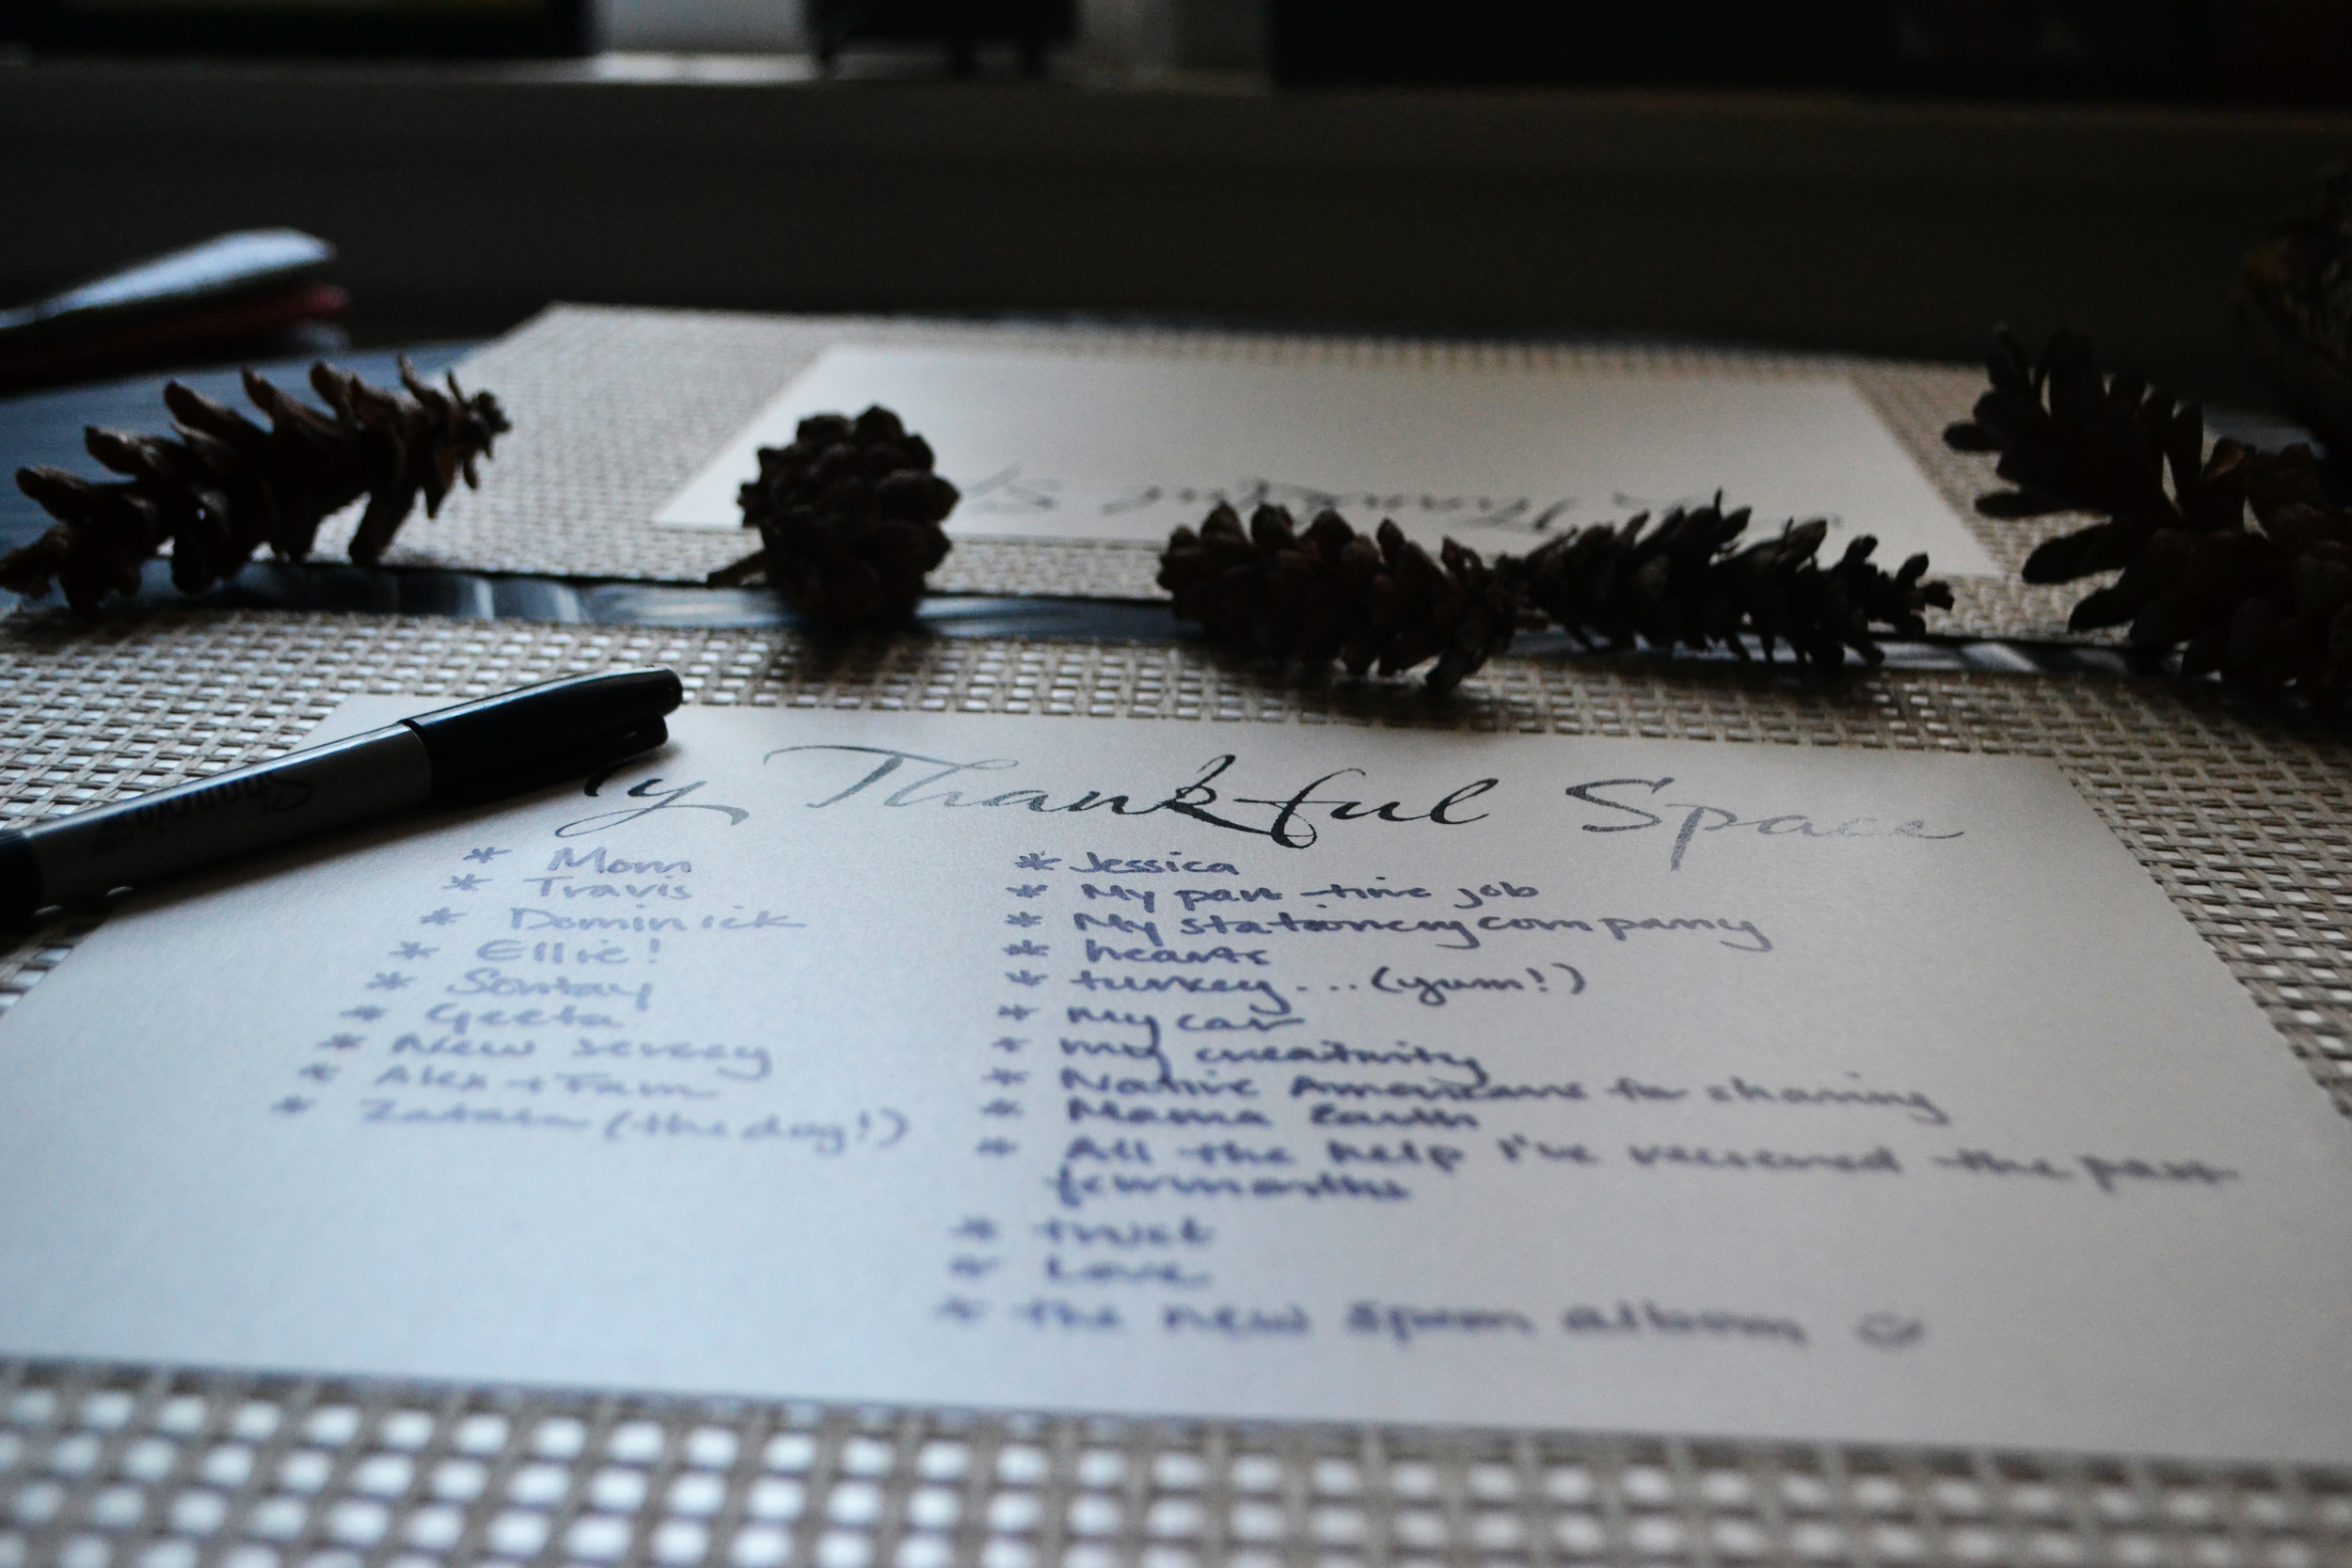 y Thankful Space
* Mom
* Travis
* Dominick
* Ellie!
* Sontay
* Geeta
* New Jersey
* Alex + Tam
* (the dog!)
* Jessica
* My part-time job
* My stationery company
* hearts
* turkey... (yum!)
* My car
* my creativity
* Native Americans for sharing
* Mama Earth
* All the help I've recieved the past
few months
* trust
* Love
* the new Spoon album
Thankful
Sharpie